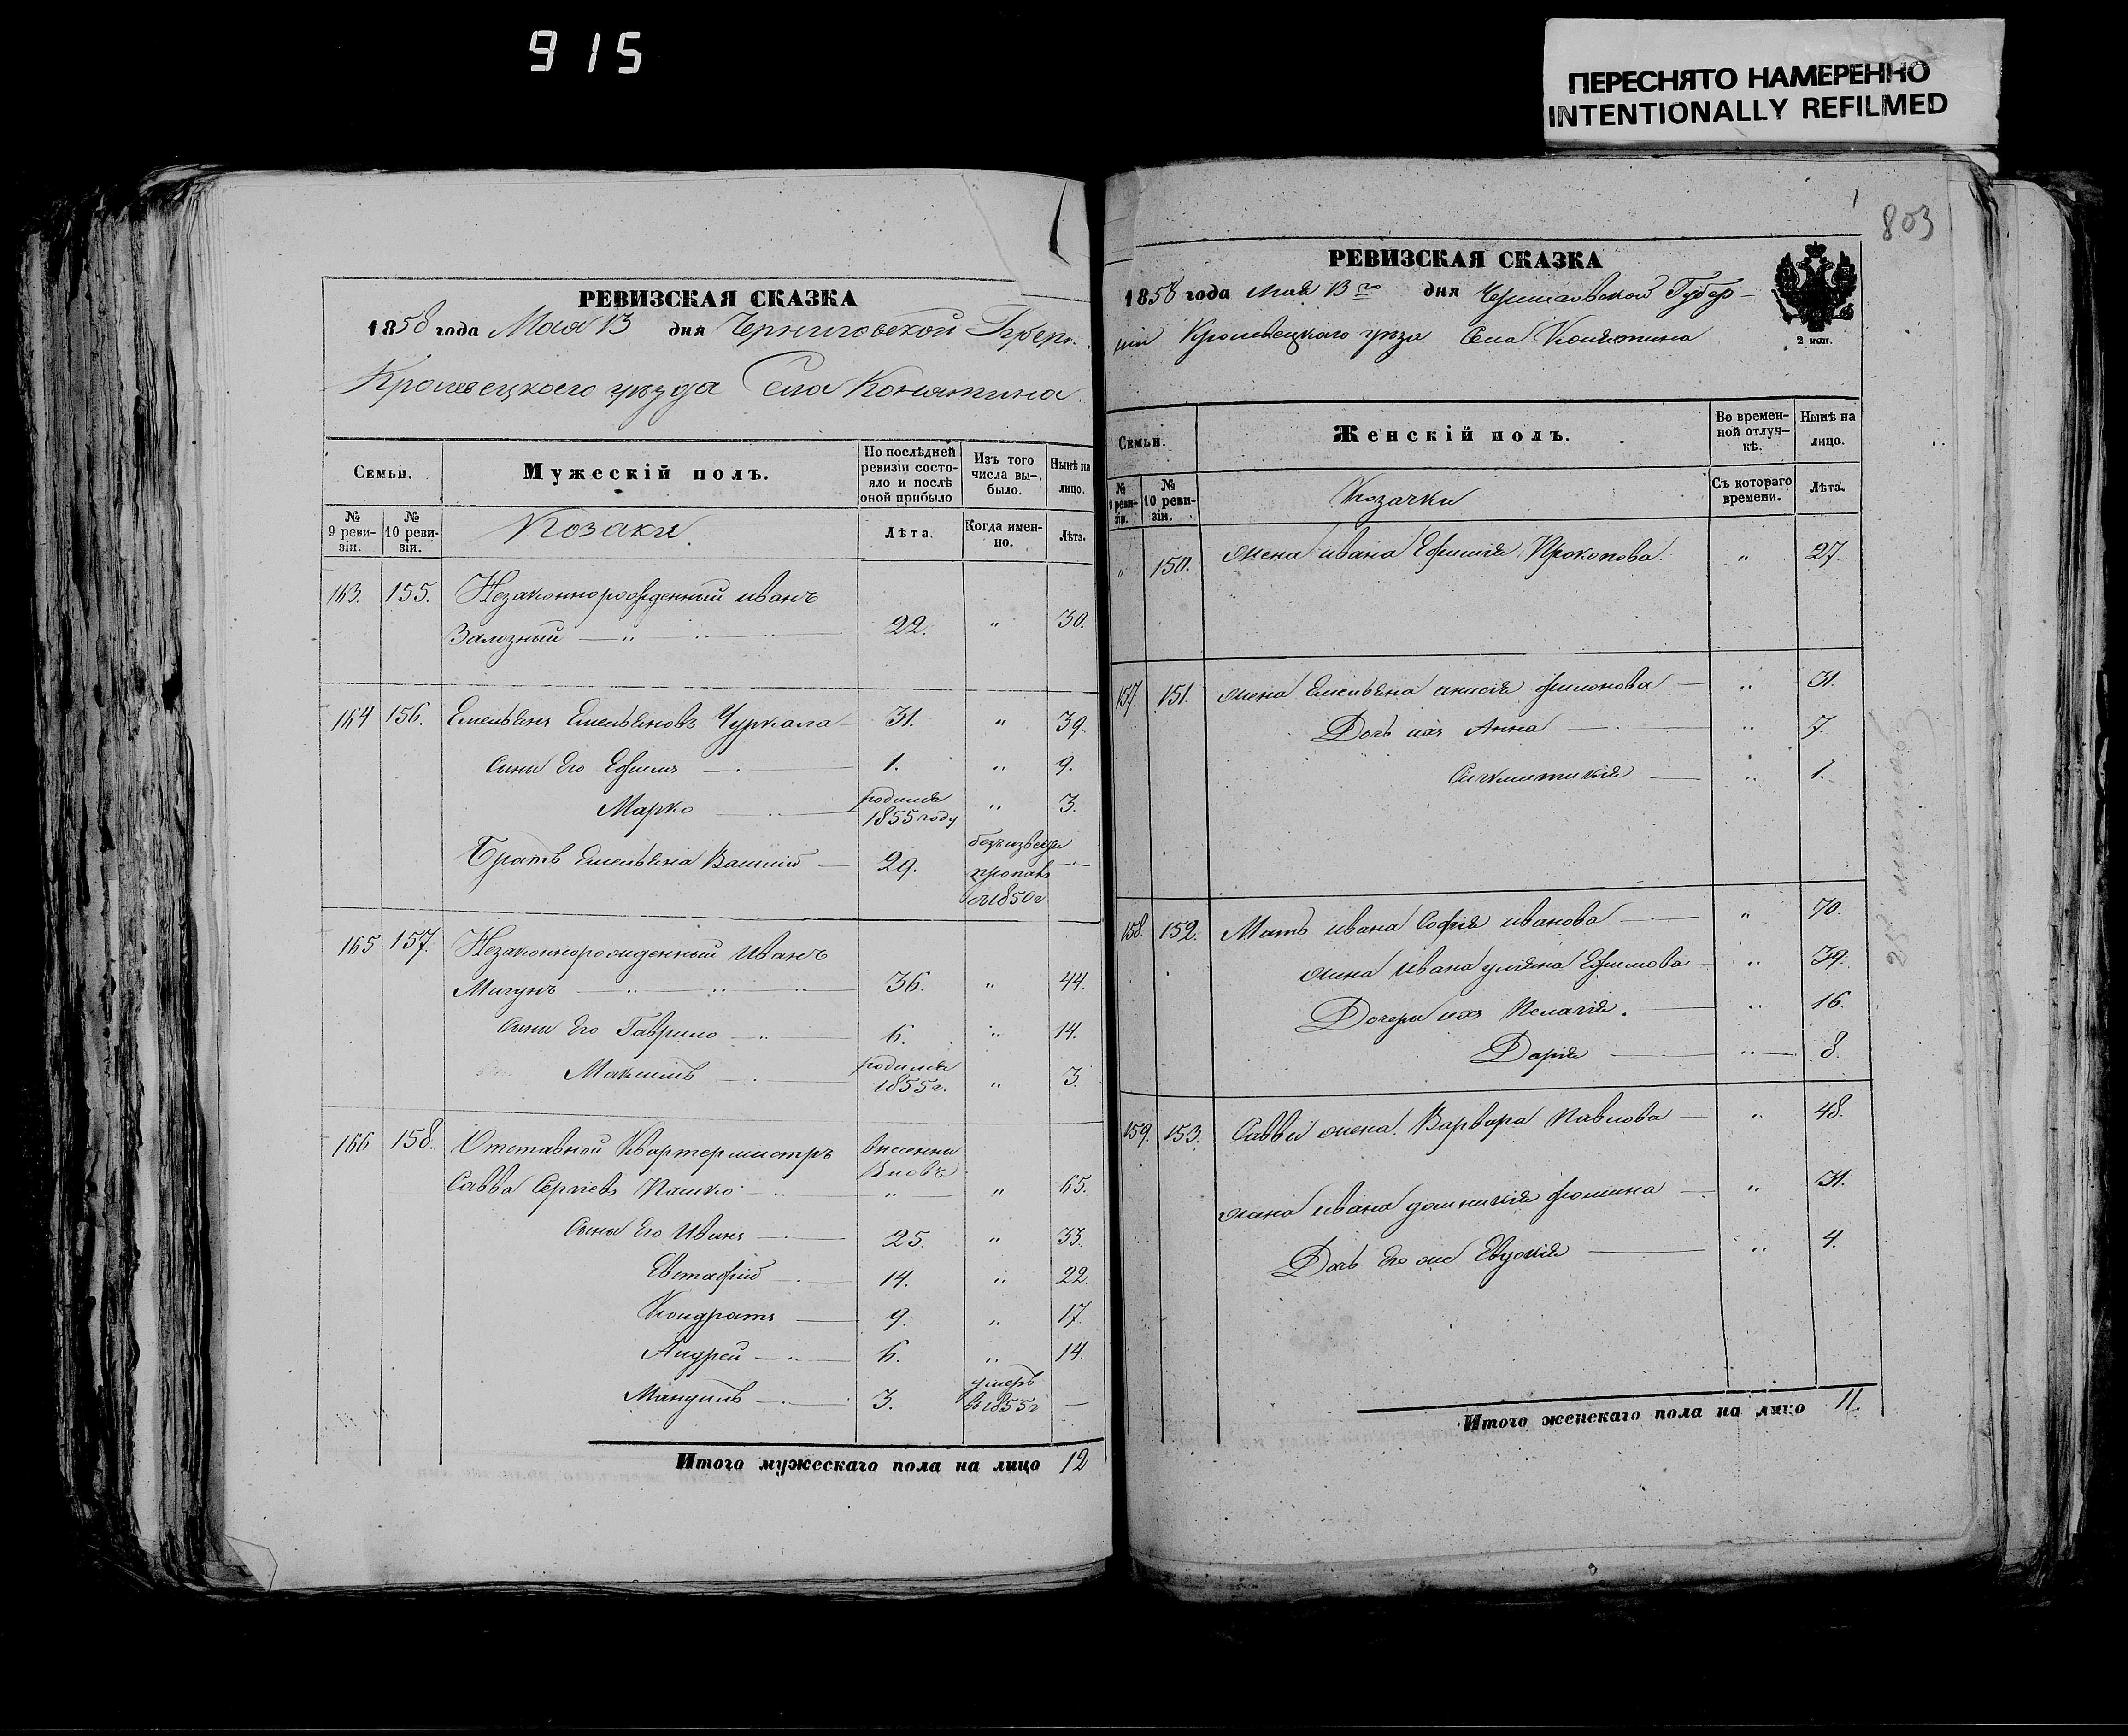 915
ПЕРЕСНЯТО НАМЕРЕННО
INTENTIONALLY REFILMED
РЕВИЗСКАЯ СКАЗКА
1858 года Мая 13 дня Черниговской Губерн.
Кролевецкого уѣзда Села Конятина.
Семьи.
Мужескій полъ.
По послѣдней ревизіи состояло и послѣ оной прибыло
Изъ того числа выбыло.
Нынѣ на лицо.
№ 9 ревизіи.
№ 10 ревизіи.
Козаки.
Лѣта.
Когда именно.
Лѣта.
163. 155. Незаконнорожденный иванъ
Залозный 22. " 30.
164 156. Емельянъ Емельяновъ Чуркала 31. " 39.
Сыны его Ефимъ 1. " 9.
Марко родился 1855 году " 3.
Братъ Емельяна Василий 29. безъизвестн пропавъ 1850 г
165 157. Незаконнорожденный Иванъ
Мигунъ 36. " 44.
Сыны его Гаврило 6. " 14.
Максимъ родился 1855 г. " 3.
166 158. Отставной Квартермистръ внесенны вновь
Савва Сергіевъ Пашко " " 65.
Сыны его Иванъ 25. " 33.
Евстафій 14. " 22.
Кондратъ 9. " 17.
Андрей 6. " 14.
Мануилъ 3. умеръ в 1855 г —
Итого мужескаго пола на лицо 12
803
РЕВИЗСКАЯ СКАЗКА
1858 года мая 13го дня Черниговской Губер-
ніи Кролевецкого уѣзда Села Конятина
2 коп.
Семьи.
Женскій полъ.
Во временной отлучкѣ.
Нынѣ на лицо.
№ 9 ревизіи.
№ 10 ревизіи.
Козачки
Съ котораго времени.
Лѣта.
" 150. жена ивана Ефимія Прокопова. " 27.
157. 151. жена Емельяна анисія филонова " 31.
Дочь ихъ Анна " 7.
" 1.
158. 152. Мать ивана Софія иванова " 70.
жена ивана уліяна Ефимова " 39.
Дочери ихъ Пелагія. " 16.
Дарія " 8.
159. 153. Саввы жена. Варвара Павлова " 48.
жена ивана домникія фомина " 31.
Дочь его же Евдокія " 4.
Итого женскаго пола на лицо 11.